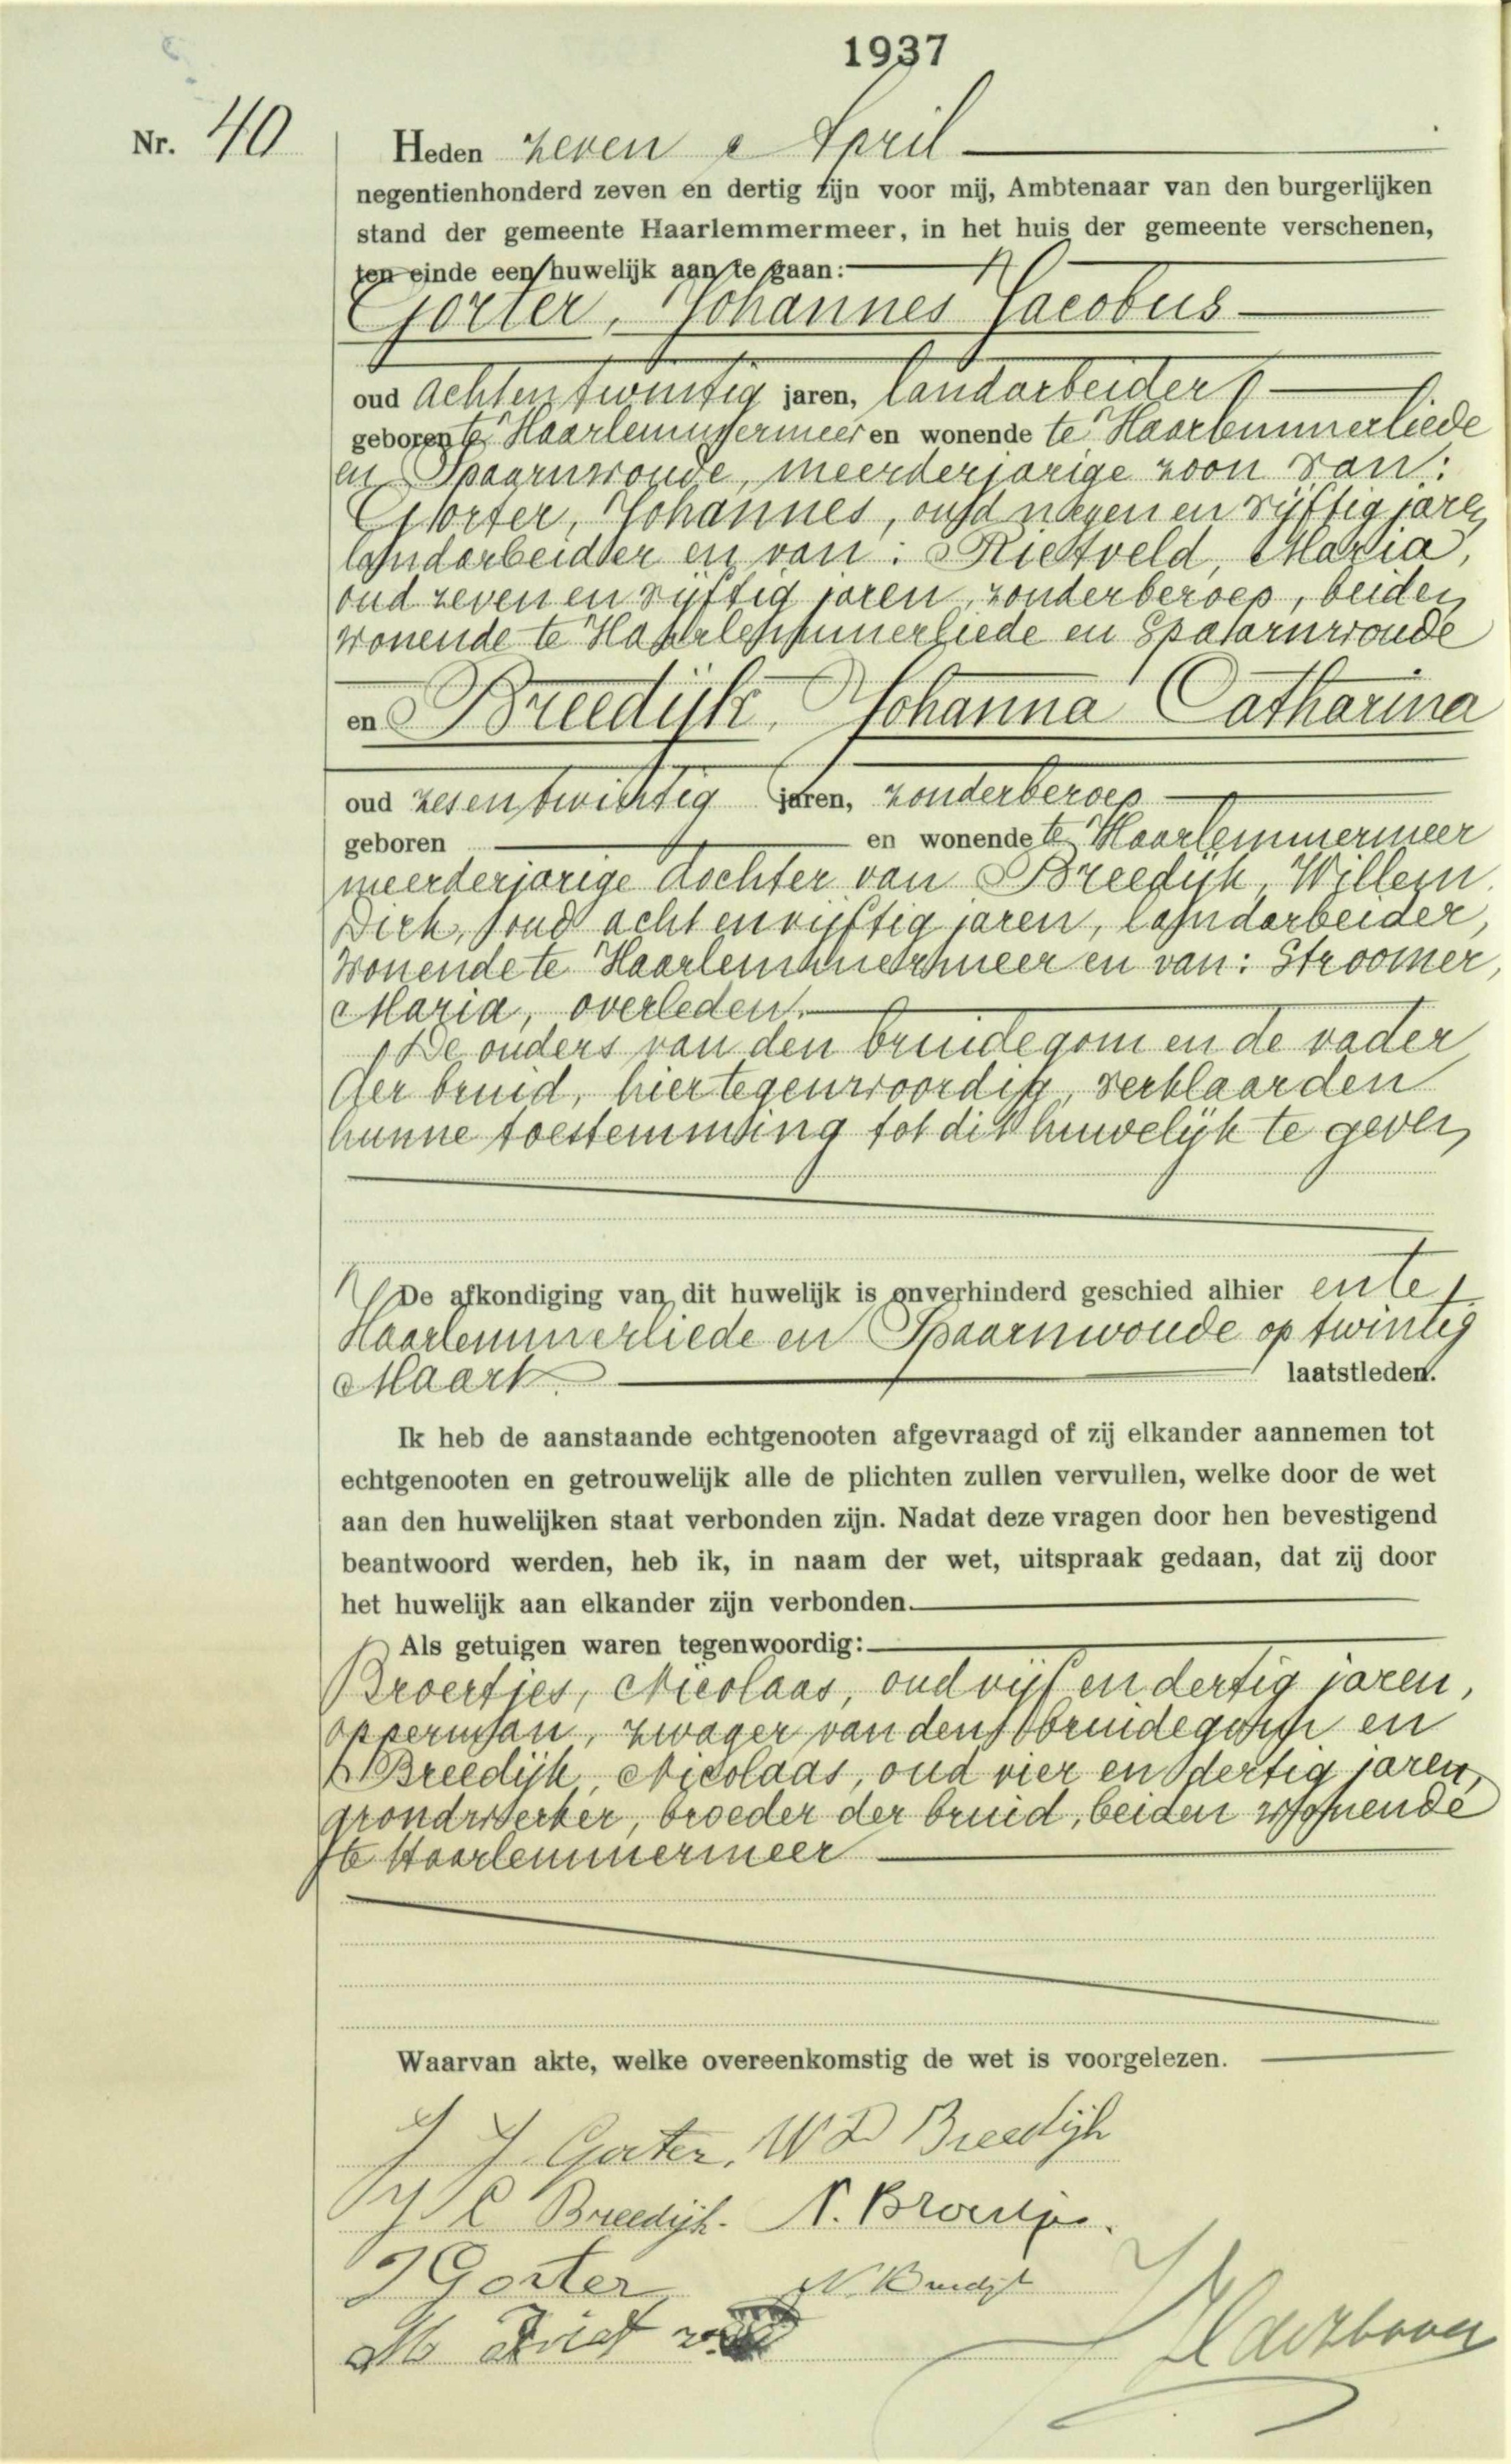 1937
Nr. 40
Heden zeven April
negentienhonderd zeven en dertig zijn voor mij, Ambtenaar van den burgerlijken
stand der gemeente Haarlemmermeer, in het huis der gemeente verschenen,
ten einde een huwelijk aan te gaan:
Gorter, Johannes Jacobus
oud achtentwintig jaren, landarbeider
geboren te Haarlemmermeer en wonende te Haarlemmerliede
en Spaarnwoude, meerderjarige zoon van:
Gorter, Johannes, oud negen en vijftig jaren,
landarbeider en van: Rietveld, Maria,
oud zeven en vijftig jaren, zonder beroep, beiden
wonende te Haarlemmerliede en Spaarnwoude
en Breedijk, Johanna Catharina
oud zesentwintig jaren, zonder beroep
geboren en wonende te Haarlemmermeer
meerderjarige dochter van Breedijk, Willem
Dirk, oud acht en vijftig jaren, landarbeider,
wonende te Haarlemmermeer en van: Stroomer,
Maria, overleden.
De ouders van den bruidegom en de vader
der bruid, hier tegenwoordig, verklaarden
hunne toestemming tot dit huwelijk te geven
De afkondiging van dit huwelijk is onverhinderd geschied alhier en te
Haarlemmerliede en Spaarnwoude op twintig
Maart laatstleden.
Ik heb de aanstaande echtgenooten afgevraagd of zij elkander aannemen tot
echtgenooten en getrouwelijk alle de plichten zullen vervullen, welke door de wet
aan den huwelijken staat verbonden zijn. Nadat deze vragen door hen bevestigend
beantwoord werden, heb ik, in naam der wet, uitspraak gedaan, dat zij door
het huwelijk aan elkander zijn verbonden.
Als getuigen waren tegenwoordig:
Broertjes, Nicolaas, oud vijf en dertig jaren,
opperman, zwager van den bruidegom en
Breedijk, Nicolaas, oud vier en dertig jaren,
grondwerker, broeder der bruid, beiden wonende
te Haarlemmermeer
Waarvan akte, welke overeenkomstig de wet is voorgelezen.
J J Gorter. W D Breedijk
J C Breedijk. N. Broertjes.
J Gorter N. Breedijk
M